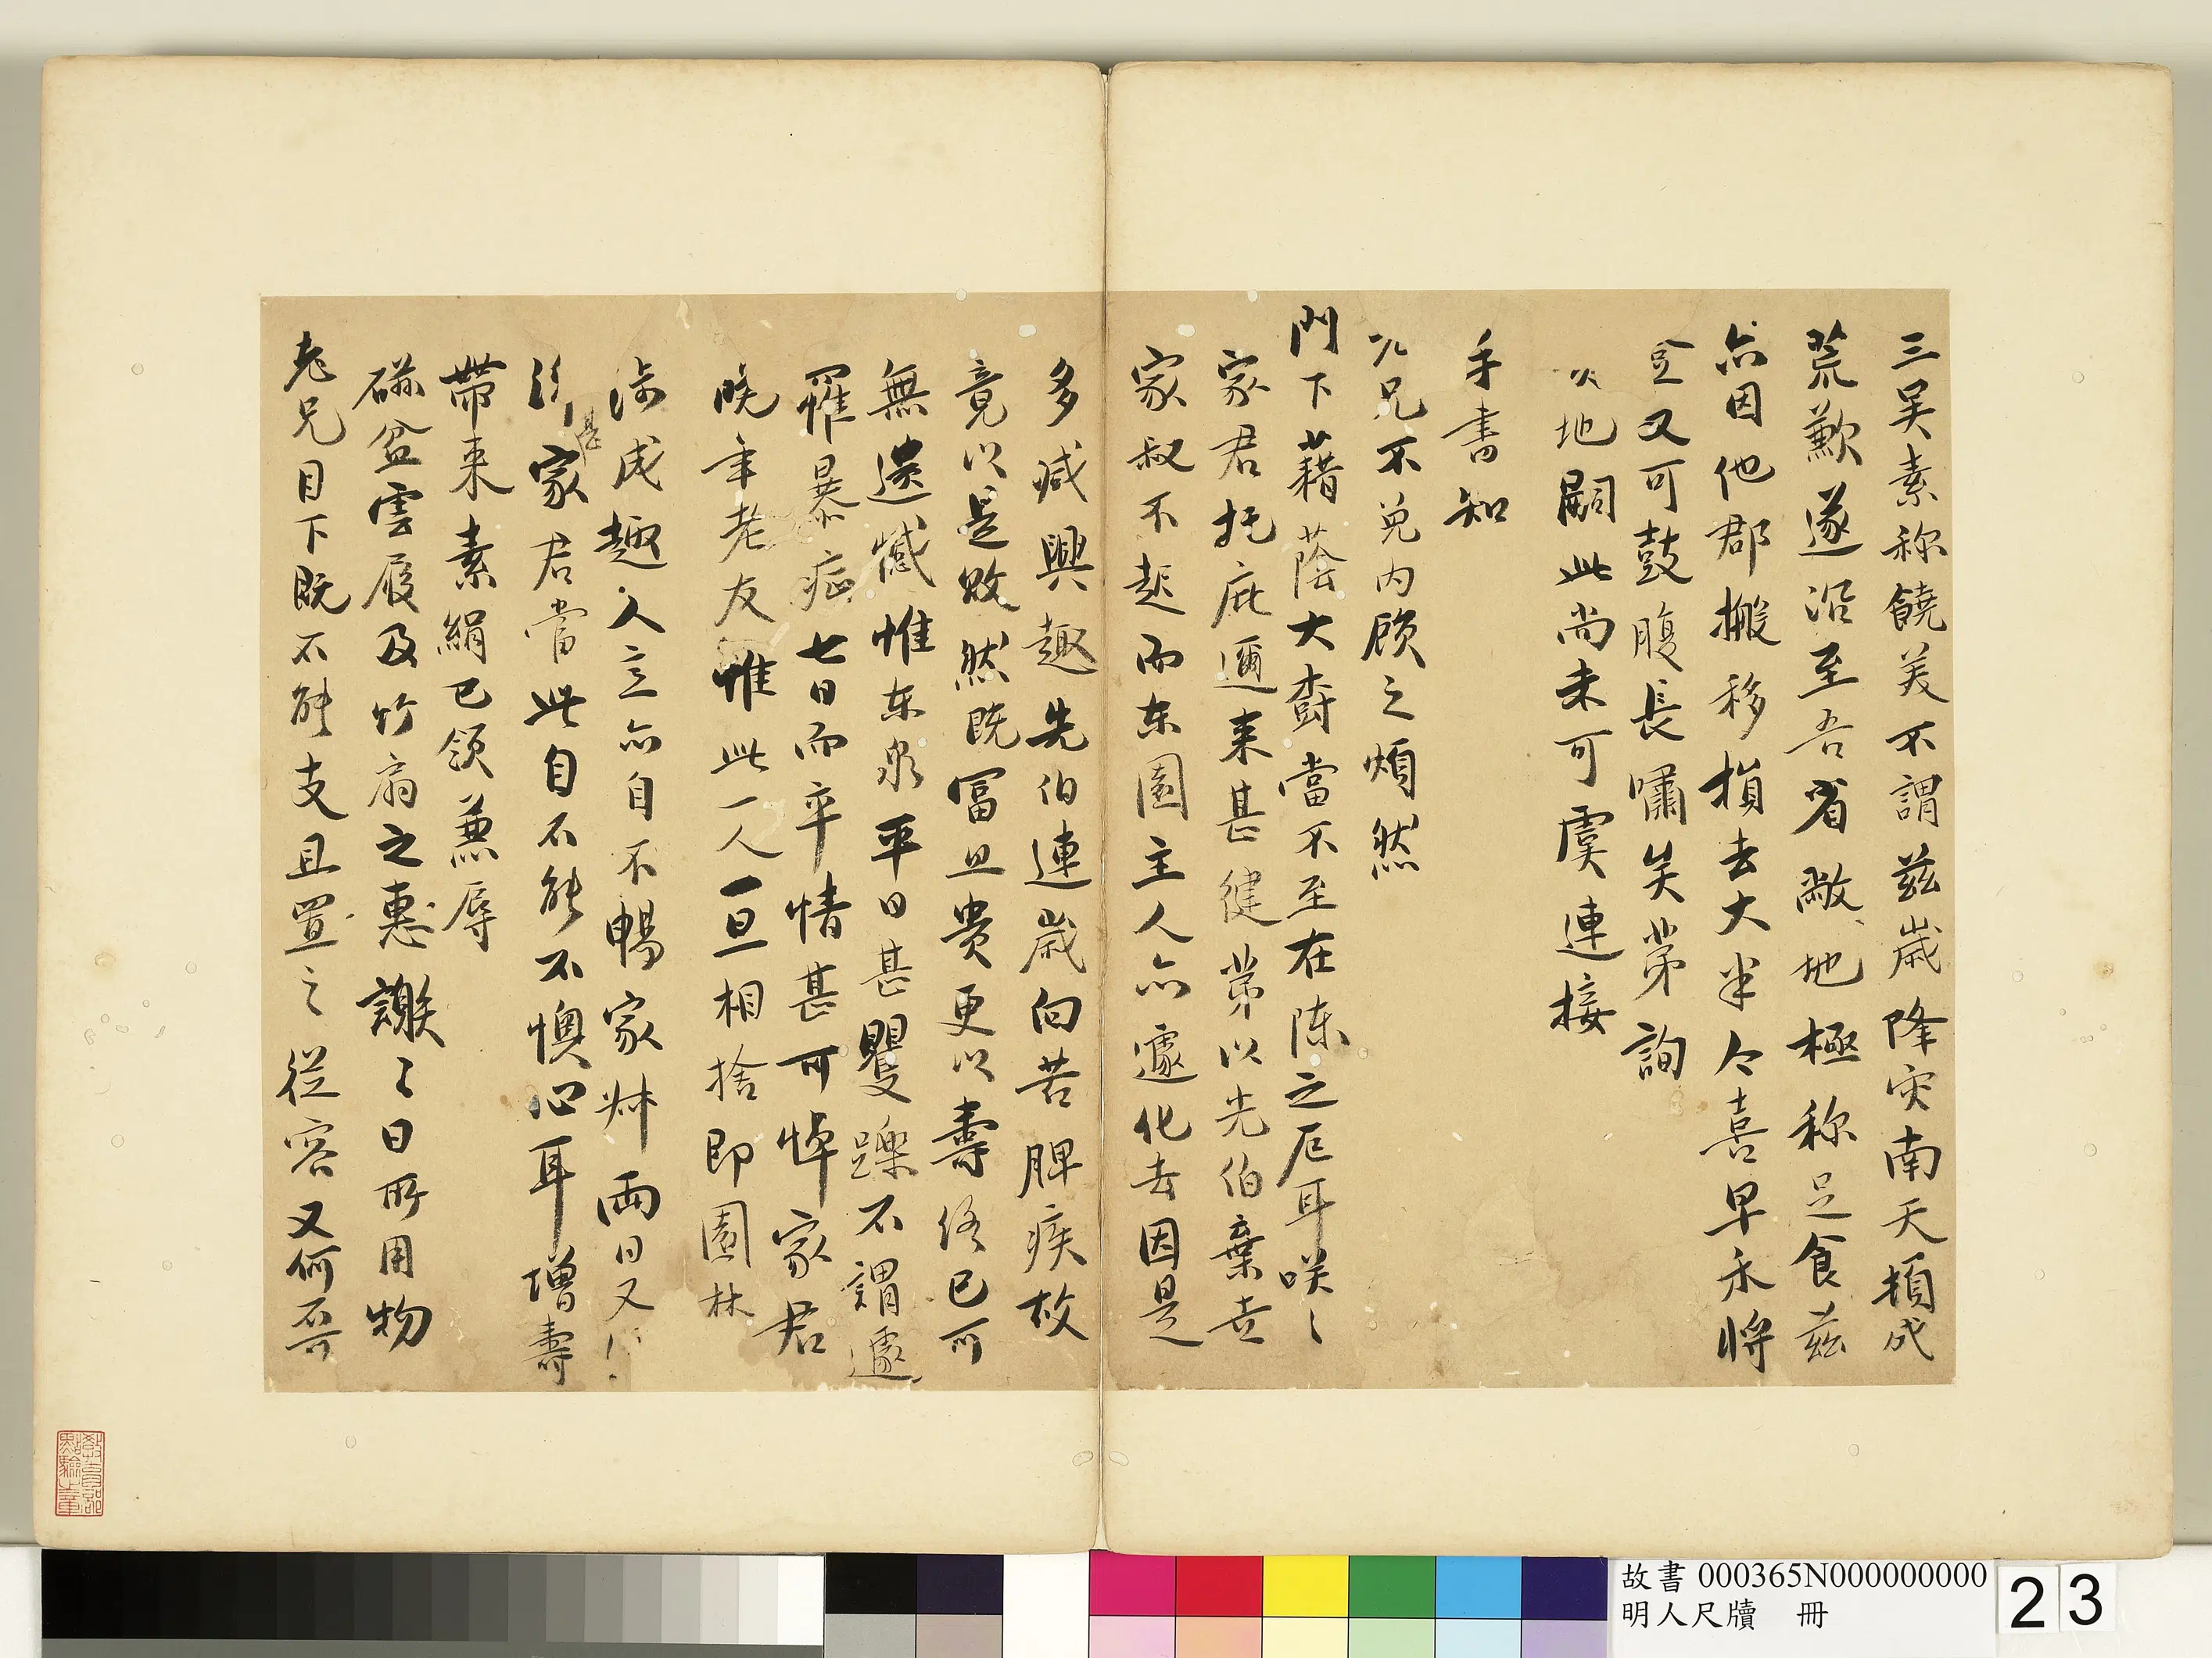 三吴素称饒美不謂兹歲降灾南天頓成
荒歉遂沿至吾省敝地極称足食兹
亦因他郡搬移損去大半今喜早禾將
登又可鼓腹長嘯矣第詢
地嗣此尚未可虞連接
手書知
兄不免内顾之煩然
門下藉蔭大樹當不至在陳之厄耳咲〻
家君托庇邇来甚健第以先伯棄世
家叔不起而东園主人亦遽化去因是
多減興趣先伯連歲向苦脾疾故
竟以是敗然既冨且贵更以壽终已可
無遗憾惟东泉平日甚矍躒不謂遽
罹暴症七日而卒情甚可悼家君
晚年老友惟此一人一旦相捨即園林
成趣人立亦自不暢家妹両日又
家君當此自不能不懊心耳增壽
甚
帶来素絹已领兼辱
磁盆雲履及竹扇之惠謝〻日所用物
老兄目下既不能支且置之從容又何不可
教育部
點驗之章
故書 000365N000000000
明人尺牘 冊
23